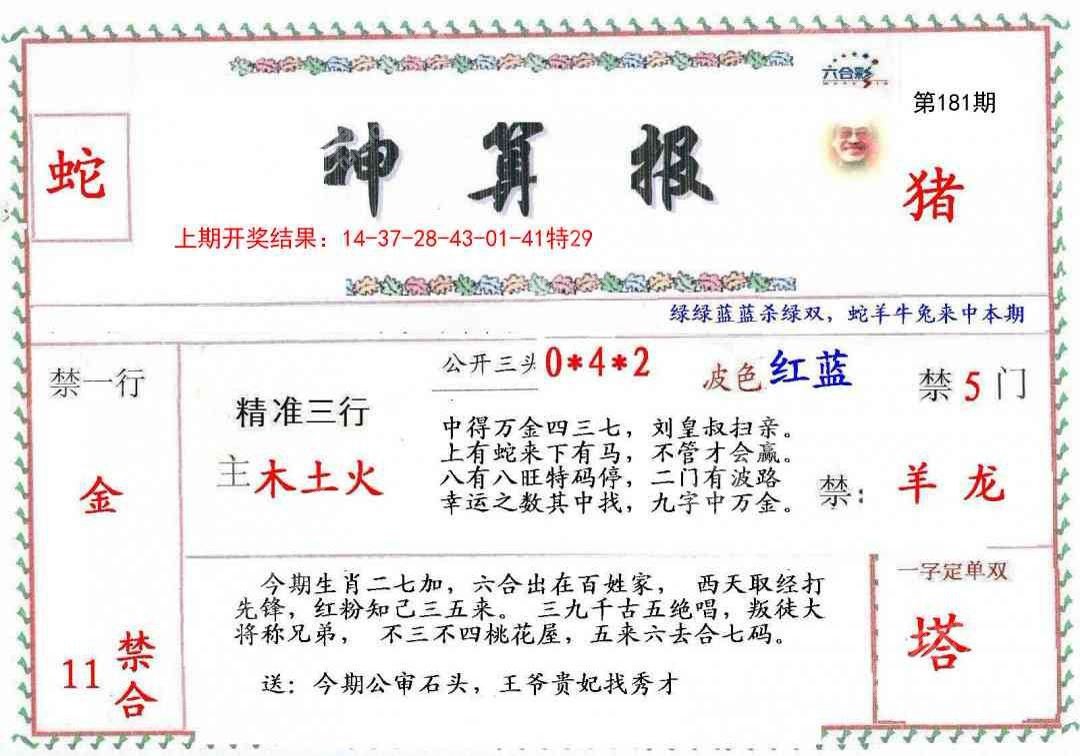 六合彩
第181期
蛇
神算报
猪
上期开奖结果：14-37-28-43-01-41特29
绿绿蓝蓝杀绿双，蛇羊牛兔来中本期
禁一行
金
11
禁合
精准三行
主木土火
公开三头0*4*2
波色红蓝
中得万金四三七，刘皇叔扫亲。
上有蛇来下有马，不管才会赢。
八有八旺特码停，二门有波路
幸运之数其中找，九字中万金。
禁5门
禁：羊龙
今期生肖二七加，六合出在百姓家， 西天取经打
先锋，红粉知己三五来。 三九千古五绝唱，叛徒大
将称兄弟， 不三不四桃花屋，五来六去合七码。
送：今期公审石头，王爷贵妃找秀才
一字定单双
塔